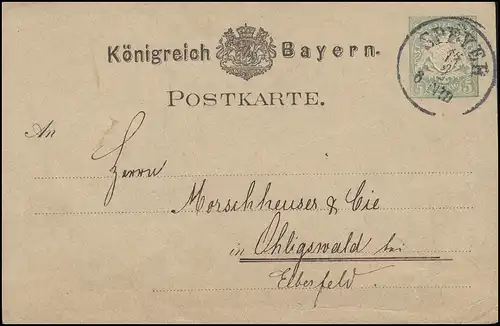 Königreich Bayern.
SPEYER
POSTKARTE.
An
Herrn
Morschheuser & Cie
in Ohligswald bei
Elberfeld.